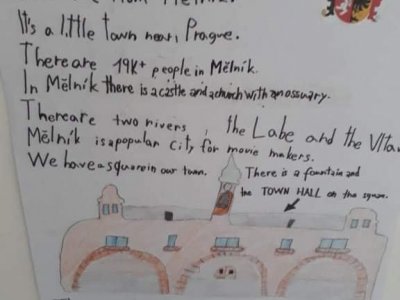 from Mělník.
It's a little town near Prague.
There are 19K+ people in Mělník.
In Mělník there is a castle and a church with an ossuary.
There are two rivers, the Labe and the Vlta
Mělník is a popular city for movie makers.
We have a square in our town. There is a fountain and
the TOWN HALL on the square.